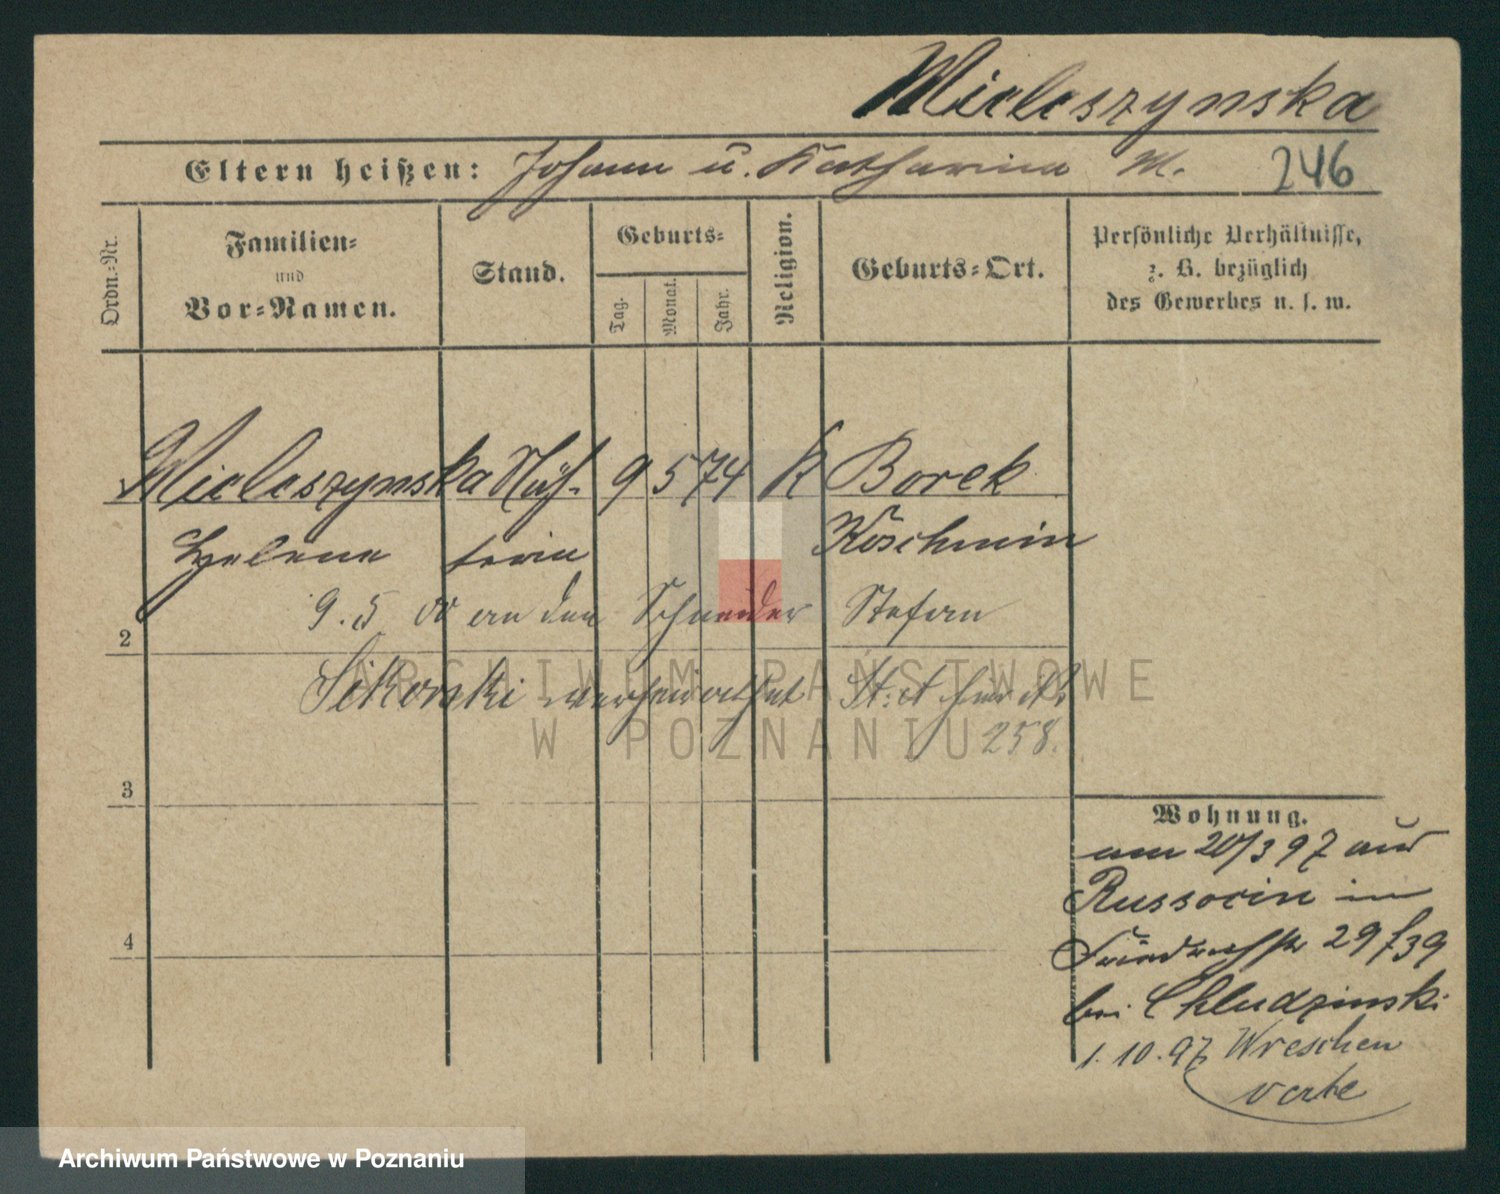 Mieleszynska
Eltern heißen: Johann u. Katharina M. 246
Ordn.=Nr.
Familien=
und
Vor=Namen.
Stand.
Geburts=
Tag.
Monat.
Jahr.
Religion.
Geburts=Ort.
Persönliche Verhältnisse,
z. B. bezüglich
des Gewerbes u. s. w.
1 Mieleszynska Näh- 9 5 74 K Borek
Helene terin Koschmin
9.5 00 an den Schneider Stefan
2
Sikorski verheirathet
258.
3
4
Wohnung.
am 20/3 97 aus
Russocin in
Friedrichstr 29/39
bei Chludzinski
1.10.97 Wreschen
verte
ARCHIWUM PAŃSTWOWE
W POZNANIU
Archiwum Państwowe w Poznaniu